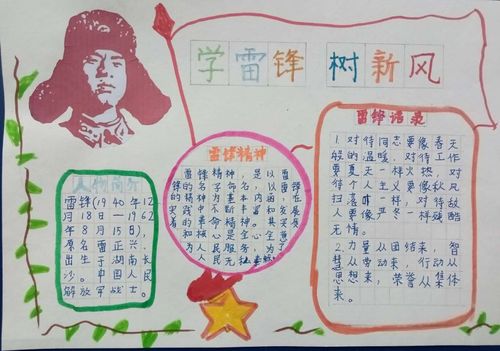 学雷锋 树新风
人物简介
雷锋(1940年12
月18日—1962
年8月15日),
原名雷正兴,
出生于湖南长
沙。中国人民
解放军战士。
雷锋精神
雷锋精神,是以雷
锋的名字命名、以雷锋
的精神为基本内涵、在
实践中不断丰富和发展
为人民服务,
雷锋语录
1.对待同志要像春天
般的温暖,对待工作
要夏天一样火热,对
待个人主义要像秋风
扫落叶一样,对待敌
人要像严冬一样残酷
无情。
2.力量从团结来,智
慧从劳动来,行动从
思想来,荣誉从集体
来。